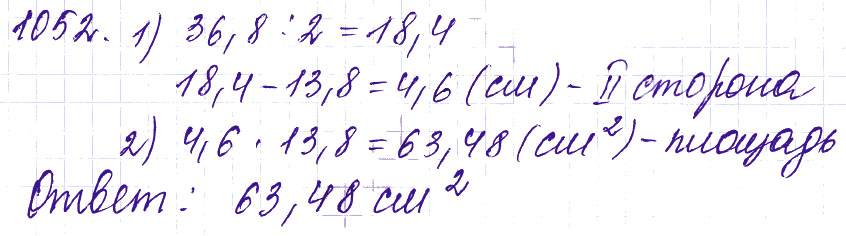 1052. 1) 36,8 : 2 = 18,4
18,4 - 13,8 = 4,6 (см) - II сторона
2) 4,6 · 13,8 = 63,48 (см²) - площадь
Ответ: 63,48 см²